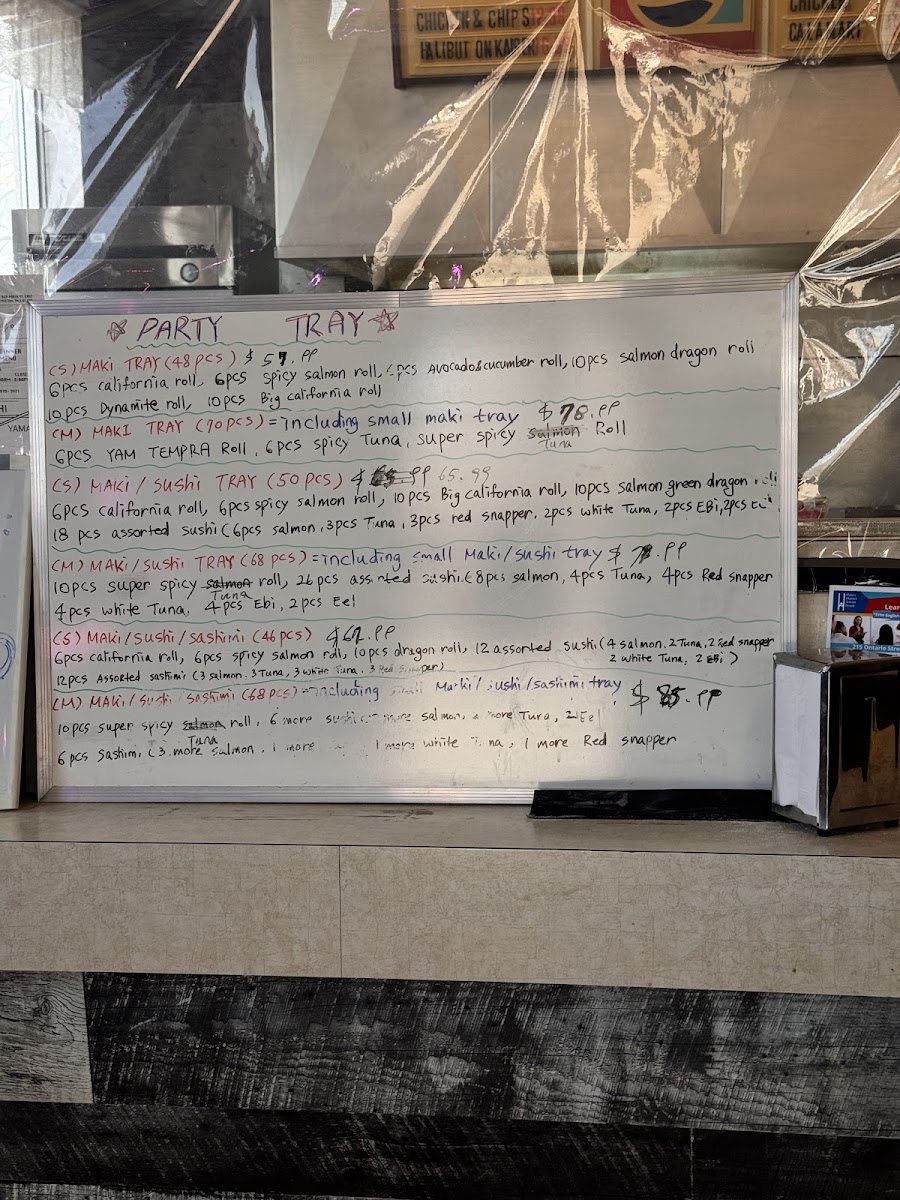 CHICKEN & CHIPS
HALIBUT ON KAISER
CALAMARI
☆ PARTY TRAY ☆
(S) MAKI TRAY (48 PCS) $ 57.99
6PCS california roll, 6pcs spicy salmon roll, 6pcs Avocado&cucumber roll, 10pcs salmon dragon roll
10pcs Dynamite roll, 10pcs Big california roll
(M) MAKI TRAY (70PCS) = including small maki tray $ 78.99
6PCS YAM TEMPRA Roll, 6pcs spicy Tuna, super spicy Salmon Roll
Tuna
(S) MAKI / SUSHI TRAY (50 PCS) $ 65.99
6pcs california roll, 6pcs spicy salmon roll, 10pcs Big california roll, 10pcs salmon green dragon roll
18 pcs assorted sushi (6pcs salmon, 3pcs Tuna, 3pcs red snapper, 2pcs white Tuna, 2pcs EBi, 2pcs Eel
(M) MAKI/SUSHI TRAY (68 PCS) = including small Maki/sushi tray $ .99
10pcs super spicy salmon roll, 26pcs assorted sushi (8pcs salmon, 4pcs Tuna, 4pcs Red snapper
Tuna
4pcs white Tuna, 4pcs Ebi, 2pcs Eel
(S) MAKI/SUSHI/SASHIMI (46 PCS) $67.99
6pcs california roll, 6pcs spicy salmon roll, 10pcs dragon roll, 12 assorted sushi (4 salmon, 2 Tuna, 2 Red snapper
2 white Tuna, 2 EBi)
12pcs Assorted sashimi (3 salmon, 3 Tuna, 3 white Tuna, 3 Red Snapper)
(M) MAKI/SUSHI/SASHIMI (68PCS) = including small Maki/sushi/sashimi tray $ 85.99
10pcs super spicy salmon roll, 6 more sushi more salmon, more Tuna, 2 Eel
Tuna
6pcs Sashimi (3 more salmon, 1 more 1 more white Tuna, 1 more Red snapper
215 Ontario Stre